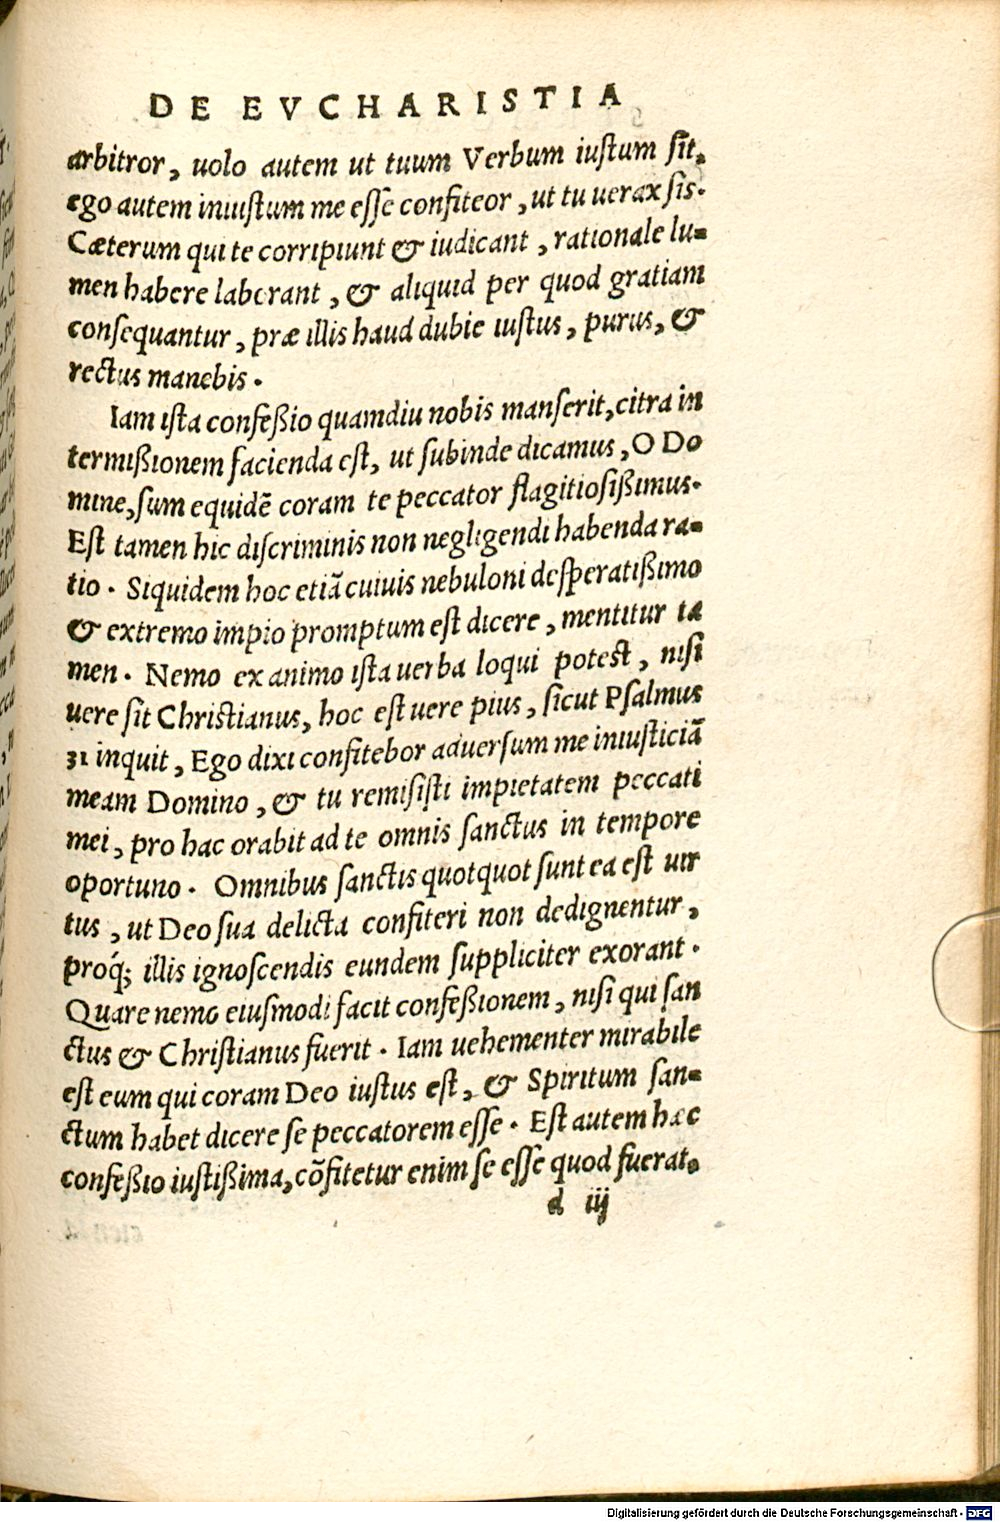 DE EVCHARISTIA
arbitror, uolo autem ut tuum Verbum iustum sit,
ego autem iniustum me esse confiteor, ut tu uerax sis.
Cæterum qui te corripiunt & iudicant, rationale lu-
men habere laborant, & aliquid per quod gratiam
consequantur, præ illis haud dubie iustus, purus, &
rectus manebis.
Iam ista confeßio quamdiu nobis manserit, citra in
termißionem facienda est, ut subinde dicamus, O Do
mine, sum equidẽ coram te peccator flagitiosißimus.
Est tamen hic discriminis non negligendi habenda ra-
tio. Siquidem hoc etiã cuiuis nebuloni desperatißimo
& extremo impio promptum est dicere, mentitur ta
men. Nemo ex animo ista uerba loqui potest, nisi
uere sit Christianus, hoc est uere pius, sicut Psalmus
31 inquit, Ego dixi confitebor aduersum me iniusticiã
meam Domino, & tu remisisti impietatem peccati
mei, pro hac orabit ad te omnis sanctus in tempore
oportuno. Omnibus sanctis quotquot sunt ea est uir
tus, ut Deo sua delicta confiteri non dedignentur,
proq́; illis ignoscendis eundem suppliciter exorant.
Quare nemo eiusmodi facit confeßionem, nisi qui san
ctus & Christianus fuerit. Iam uehementer mirabile
est eum qui coram Deo iustus est, & Spiritum san-
ctum habet dicere se peccatorem esse. Est autem hæc
confeßio iustißima, cõfitetur enim se esse quod fuerat,
d iij
Digitalisierung gefördert durch die Deutsche Forschungsgemeinschaft - DFG